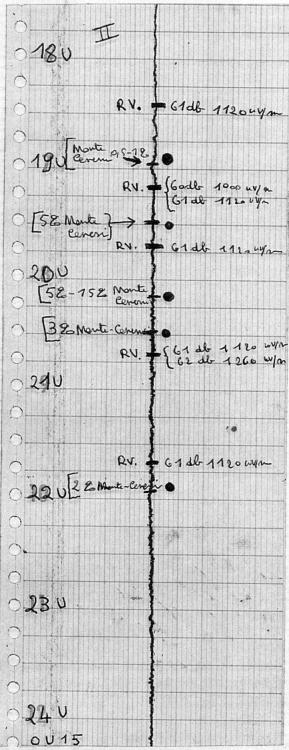 II
18 U
RV. 61 db 1120 uv/m
19 U [Monte Ceneri 0,5-1%
RV. {60db 1000 uv/m
61 db 1120 uv/m
[5% Monte Ceneri]
RV. 61 db 1120 uv/m
20 U
[5% - 15% Monte Ceneri
[3% Monte-Ceneri
RV. {61 db 1120 uv/m
62 db 1260 uv/m
21 U
RV. 61 db 1120 uv/m
22 U [2% Monte-Ceneri
23 U
24 U
0 U 15